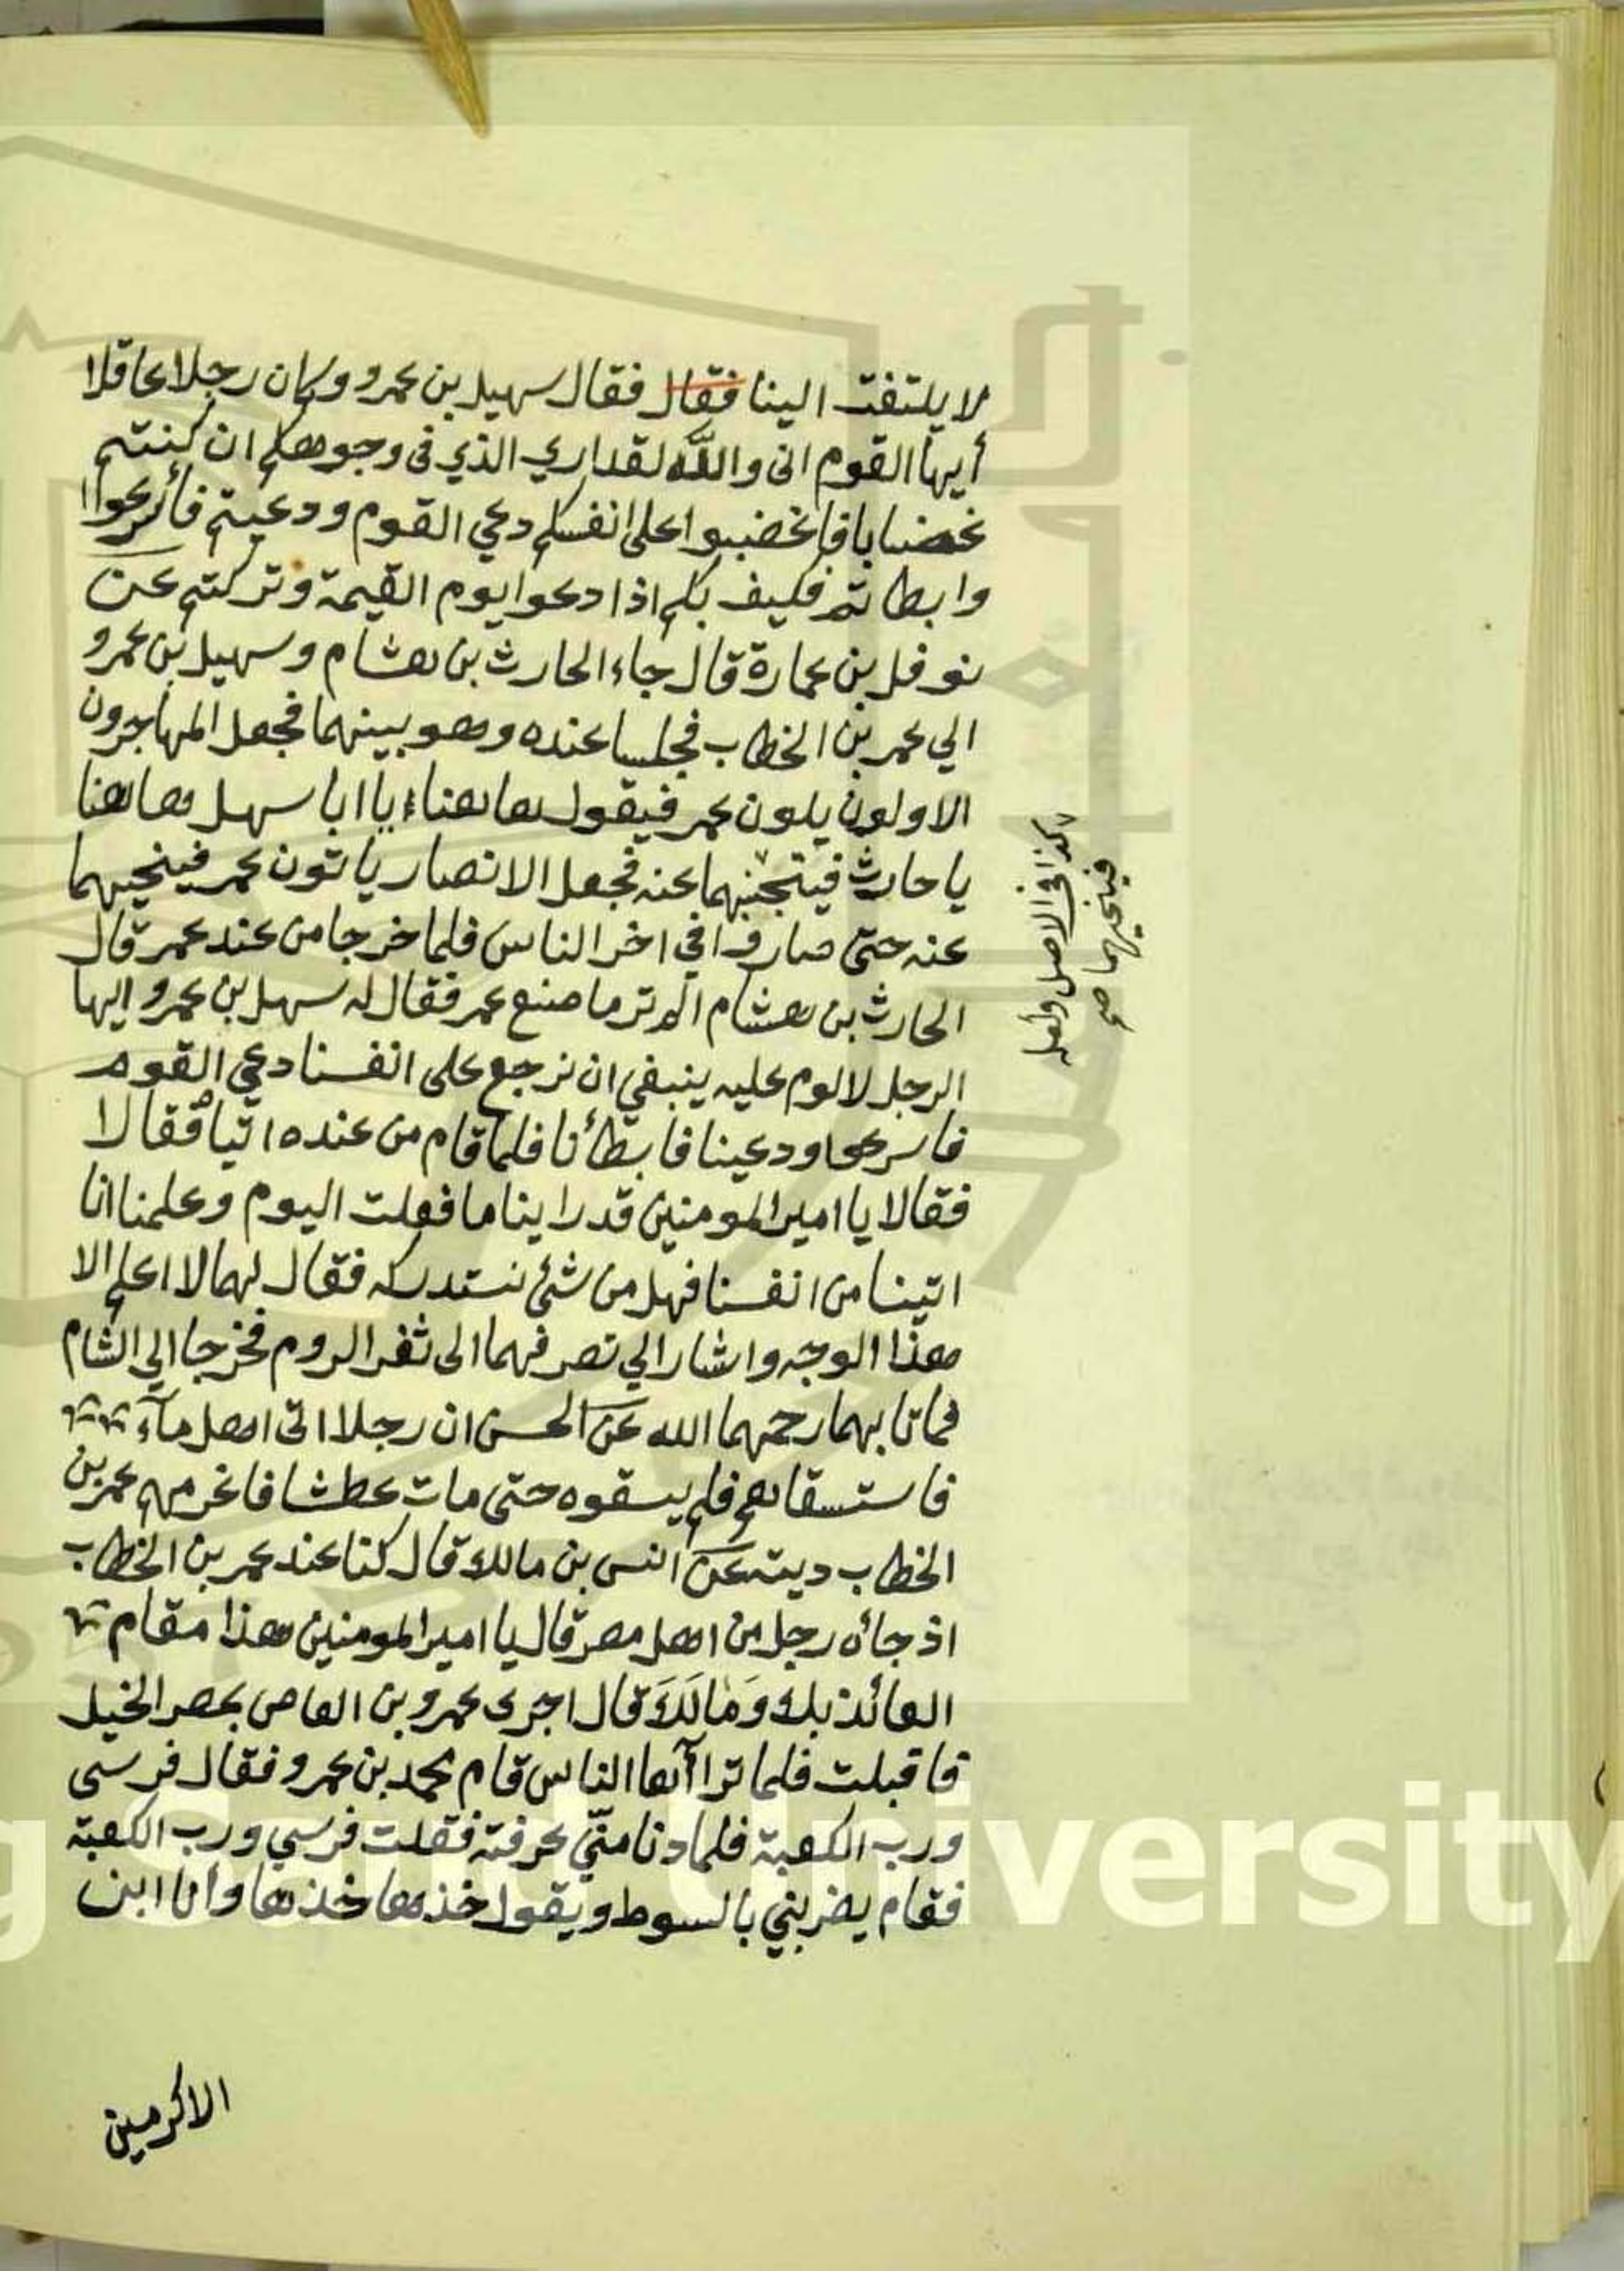 لا يلتفت الينا فقال فقال سهيل بن عمرو وكان رجلا عاقلا
أيها القوم انى والله لقد اري الذي فى وجوهكم ان كنتم
غضابا فاغضبوا على انفسكم دعي القوم ودعيتم فأسرعوا
وابطاتم فكيف بكم اذا دعوا يوم القيمة وتركتم عن
نوفل بن عمارة قال جاء الحارث بن هشام وسهيل بن عمرو
الي عمر بن الخطاب فجلسا عنده وهو بينهما فجعل المهاجرون
الاولون يلون عمر فيقول هاهناء يا ابا سهل هاهنا
يا حارث فيتجنبهما عنه فجعل الانصار ياتون عمر فينحيهما
عنه حتى صاروا في اخر الناس فلما خرجا من عند عمر قال
الحارث بن هشام الم تر ما صنع عمر فقال له سهل بن عمرو ايها
الرجل لا لوم عليه ينبغي ان نرجع على انفسنا دعي القوم
فاسرعوا ودعينا فابطأنا فلما قام من عنده اتيا فقالا
فقالا يا امير المومنين قد راينا ما فعلت اليوم وعلمنا انا
اتينا من انفسنا فهل من شئ نستدركه فقال لهما لا اعلم الا
هذا الوجه واشار الي تصرفهما الى ثغر الروم فخرجا الي الشام
فماتا بهما رحمهما الله عن الحسن ان رجلا اتى اهل مآء
فاستسقاهم فلم يسقوه حتى مات عطشا فاغرمهم عمر بن
الخطاب ديته عن انس بن مالك قال كنا عند عمر بن الخطاب
اذ جائه رجل من اهل مصر قال يا امير المومنين هذا مقام
العائذ بك وَمَالَكَ قال اجرى عمرو بن العاص بمصر الخيل
فاقبلت فلما تراآها الناس قام محمد بن عمرو فقال فرسى
ورب الكعبة فلما دنا منّي عرفته فقلت فرسي ورب الكعبة
فقام يضربني بالسوط ويقول خذها خذها وأنا ابن
الاكرمين
كذا في الاصل ولعله
فينحيهما صح
g Saud University